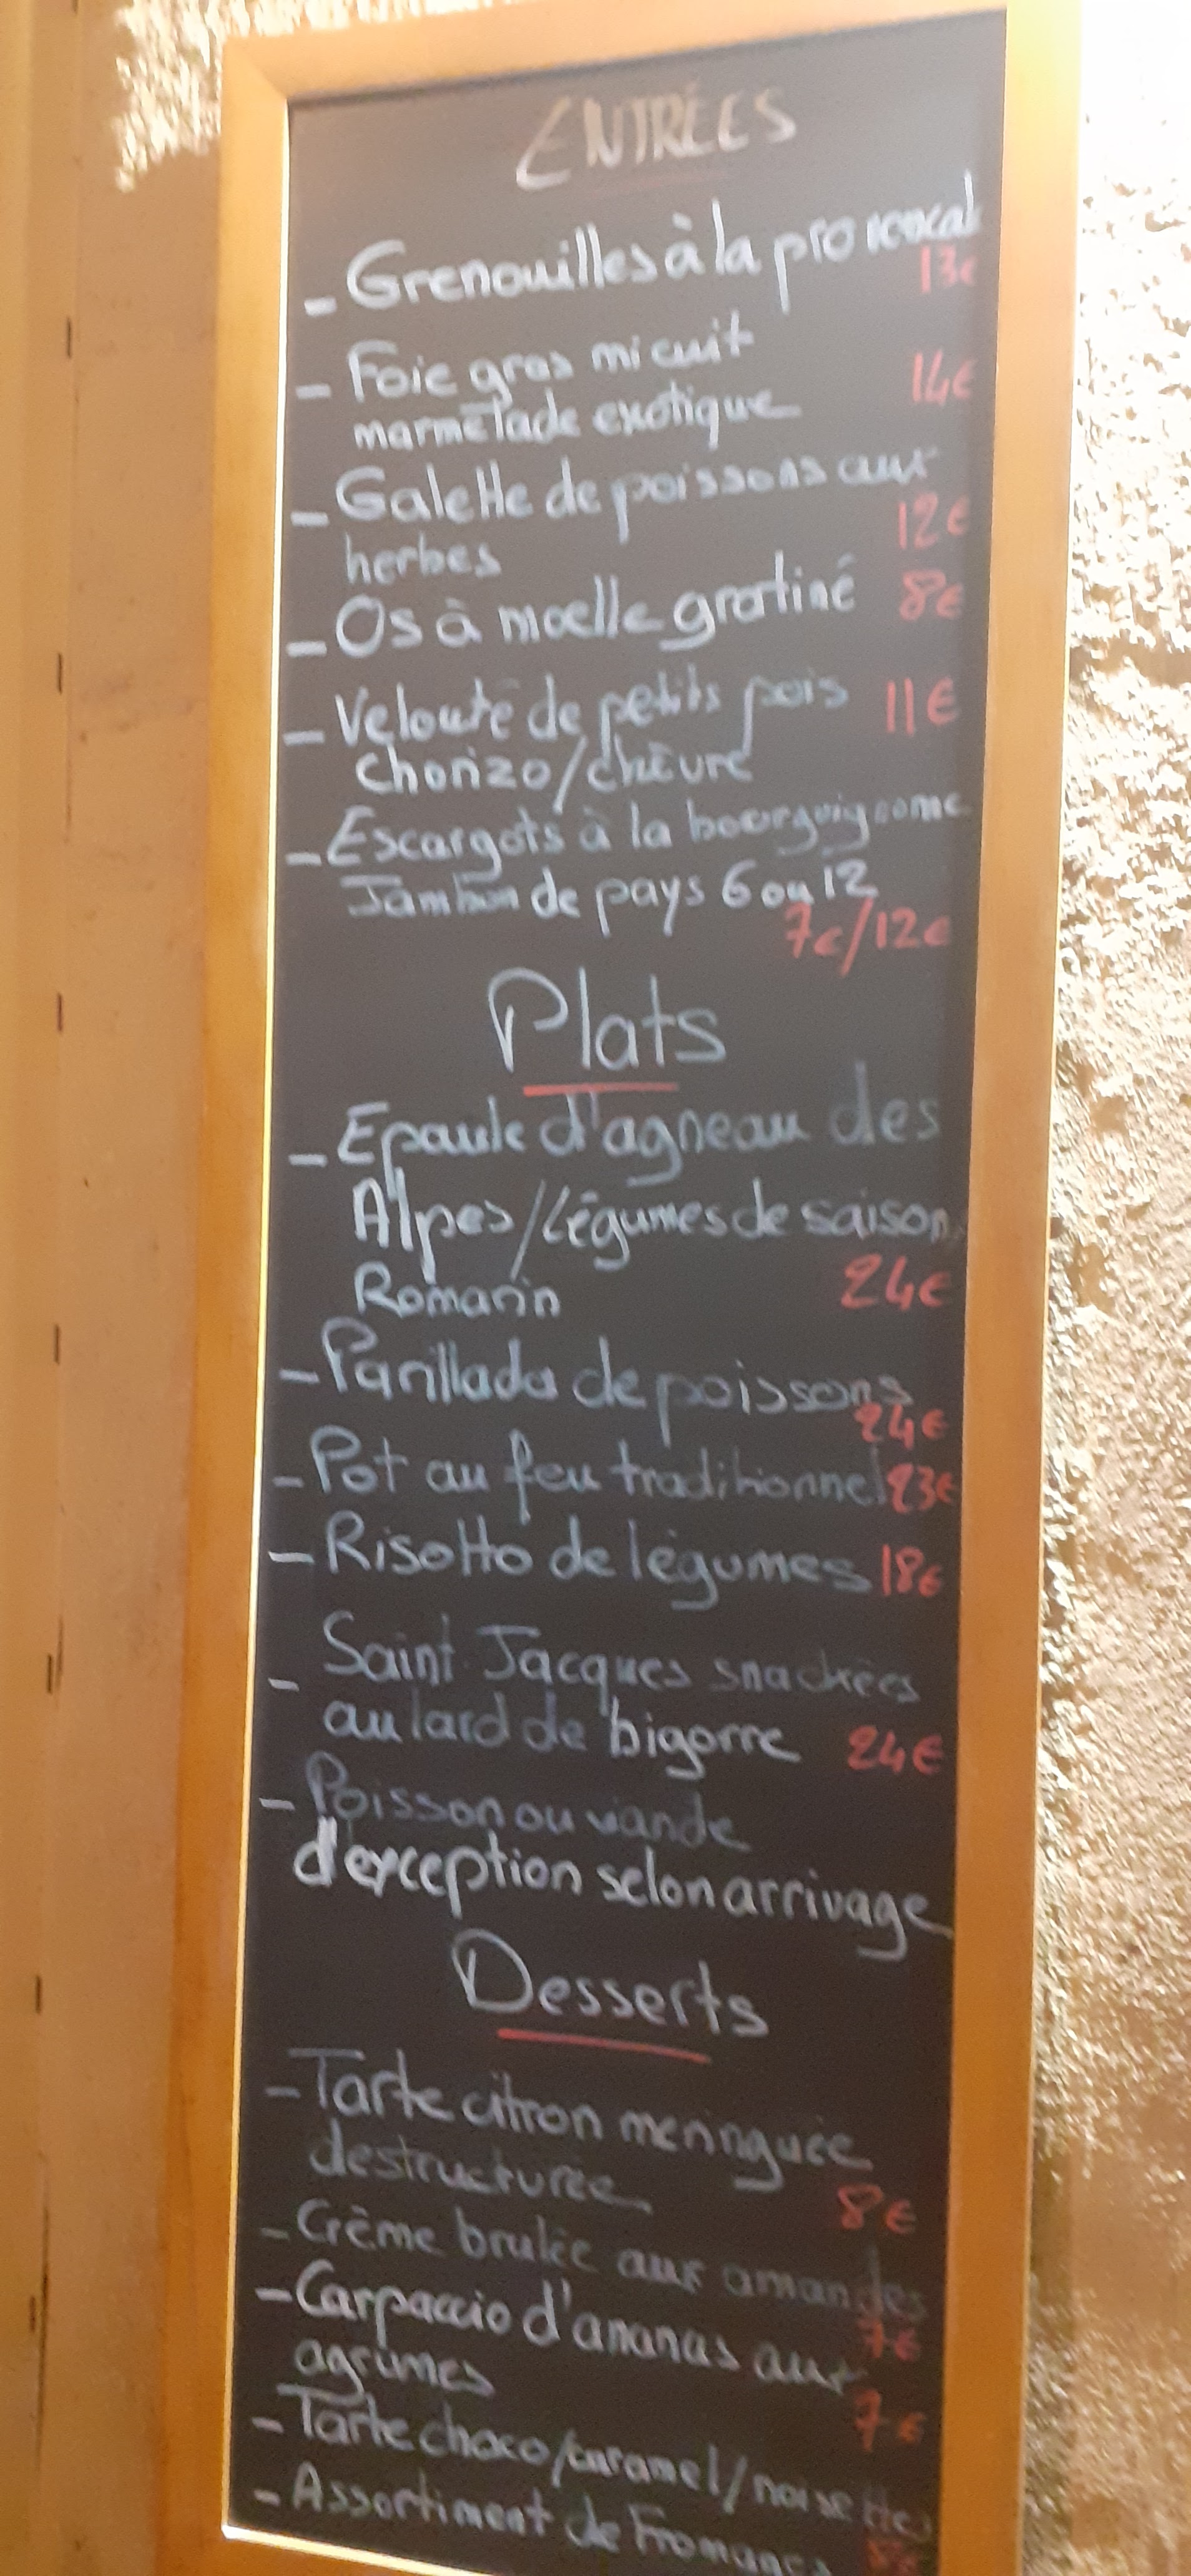 ENTRÉES
- Grenouilles à la provençal
13€
- Foie gras mi cuit
14€
marmelade exotique
- Galette de poissons aux
12€
herbes
- Os à moelle gratiné 8€
- Velouté de petits pois 11€
Chorizo/chèvre
- Escargots à la bourguignonne
Jambon de pays 6 ou 12
7€/12€
Plats
- Epaule d'agneau des
Alpes/légumes de saison
Romarin 24€
- Parillada de poissons
24€
- Pot au feu traditionnel 23€
- Risotto de légumes 18€
- Saint Jacques snackées
au lard de bigorre 24€
- Poisson ou viande
d'exception selon arrivage
Desserts
- Tarte citron meringuée
destructurée
8€
- Crème brulée aux amandes
7€
- Carpaccio d'ananas aux
agrumes
7€
- Tarte choco/caramel/noisettes
- Assortiment de Fromages